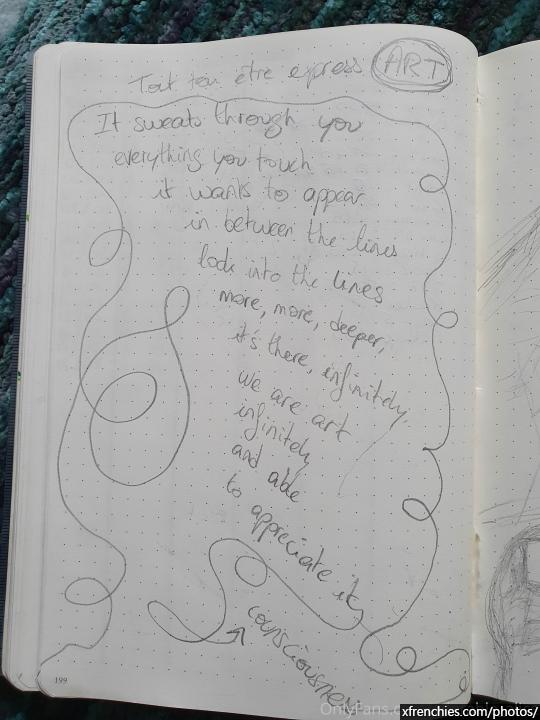 Tout ton être express ART
It sweats through you
everything you touch
it wants to appear
in between the lines
look into the lines
more, more, deeper,
it's there, infinitely.
we are art
infinitely
and able
to appreciate it,
consciousness
199
OnlyFans.c
xfrenchies.com/photos/